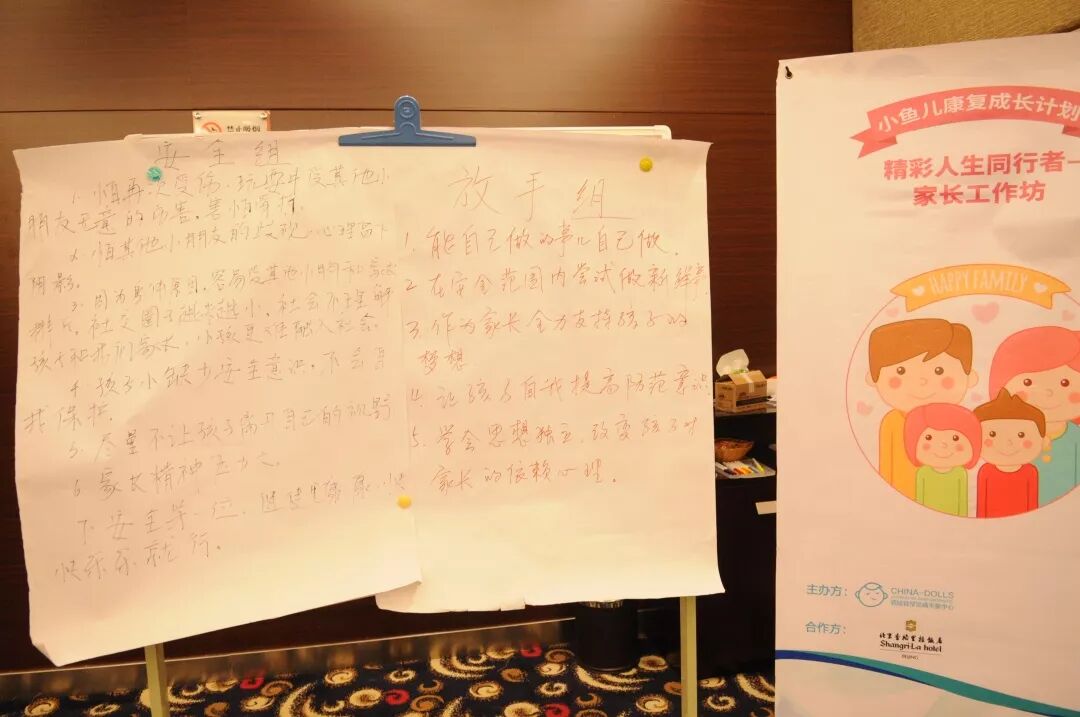 禁止吸烟
安全组
1. 怕再次受伤、玩耍中受其他小
朋友无意的伤害。害怕骨折.
2. 怕其他小朋友的歧视、心理留下
阴影。
3. 因为身体原因,容易受其他小朋和家长
排斥。社交圈子越来越小。社会不理解
孩子和我们家长,小孩更不能融入社会。
4. 孩子小缺少安全意识。不会自
我保护.
5. 尽量不让孩子离开自己的视野
6. 家长精神压力大.
7. 安全第一位,健健康康,快
快乐乐就行。
放手组
1. 能自己做的事儿自己做.
2. 在安全范围内尝试做新鲜事.
3. 作为家长全力支持孩子的
梦想
4. 让孩子自我提高防范意识
5. 学会思想独立,改变孩子对
家长的依赖心理.
小鱼儿康复成长计划
精彩人生同行者—
家长工作坊
HAPPY FAMILY
主办方:
CHINA-DOLLS
合作方:
北京香格里拉饭店
Shangri-La hotel
BEIJING